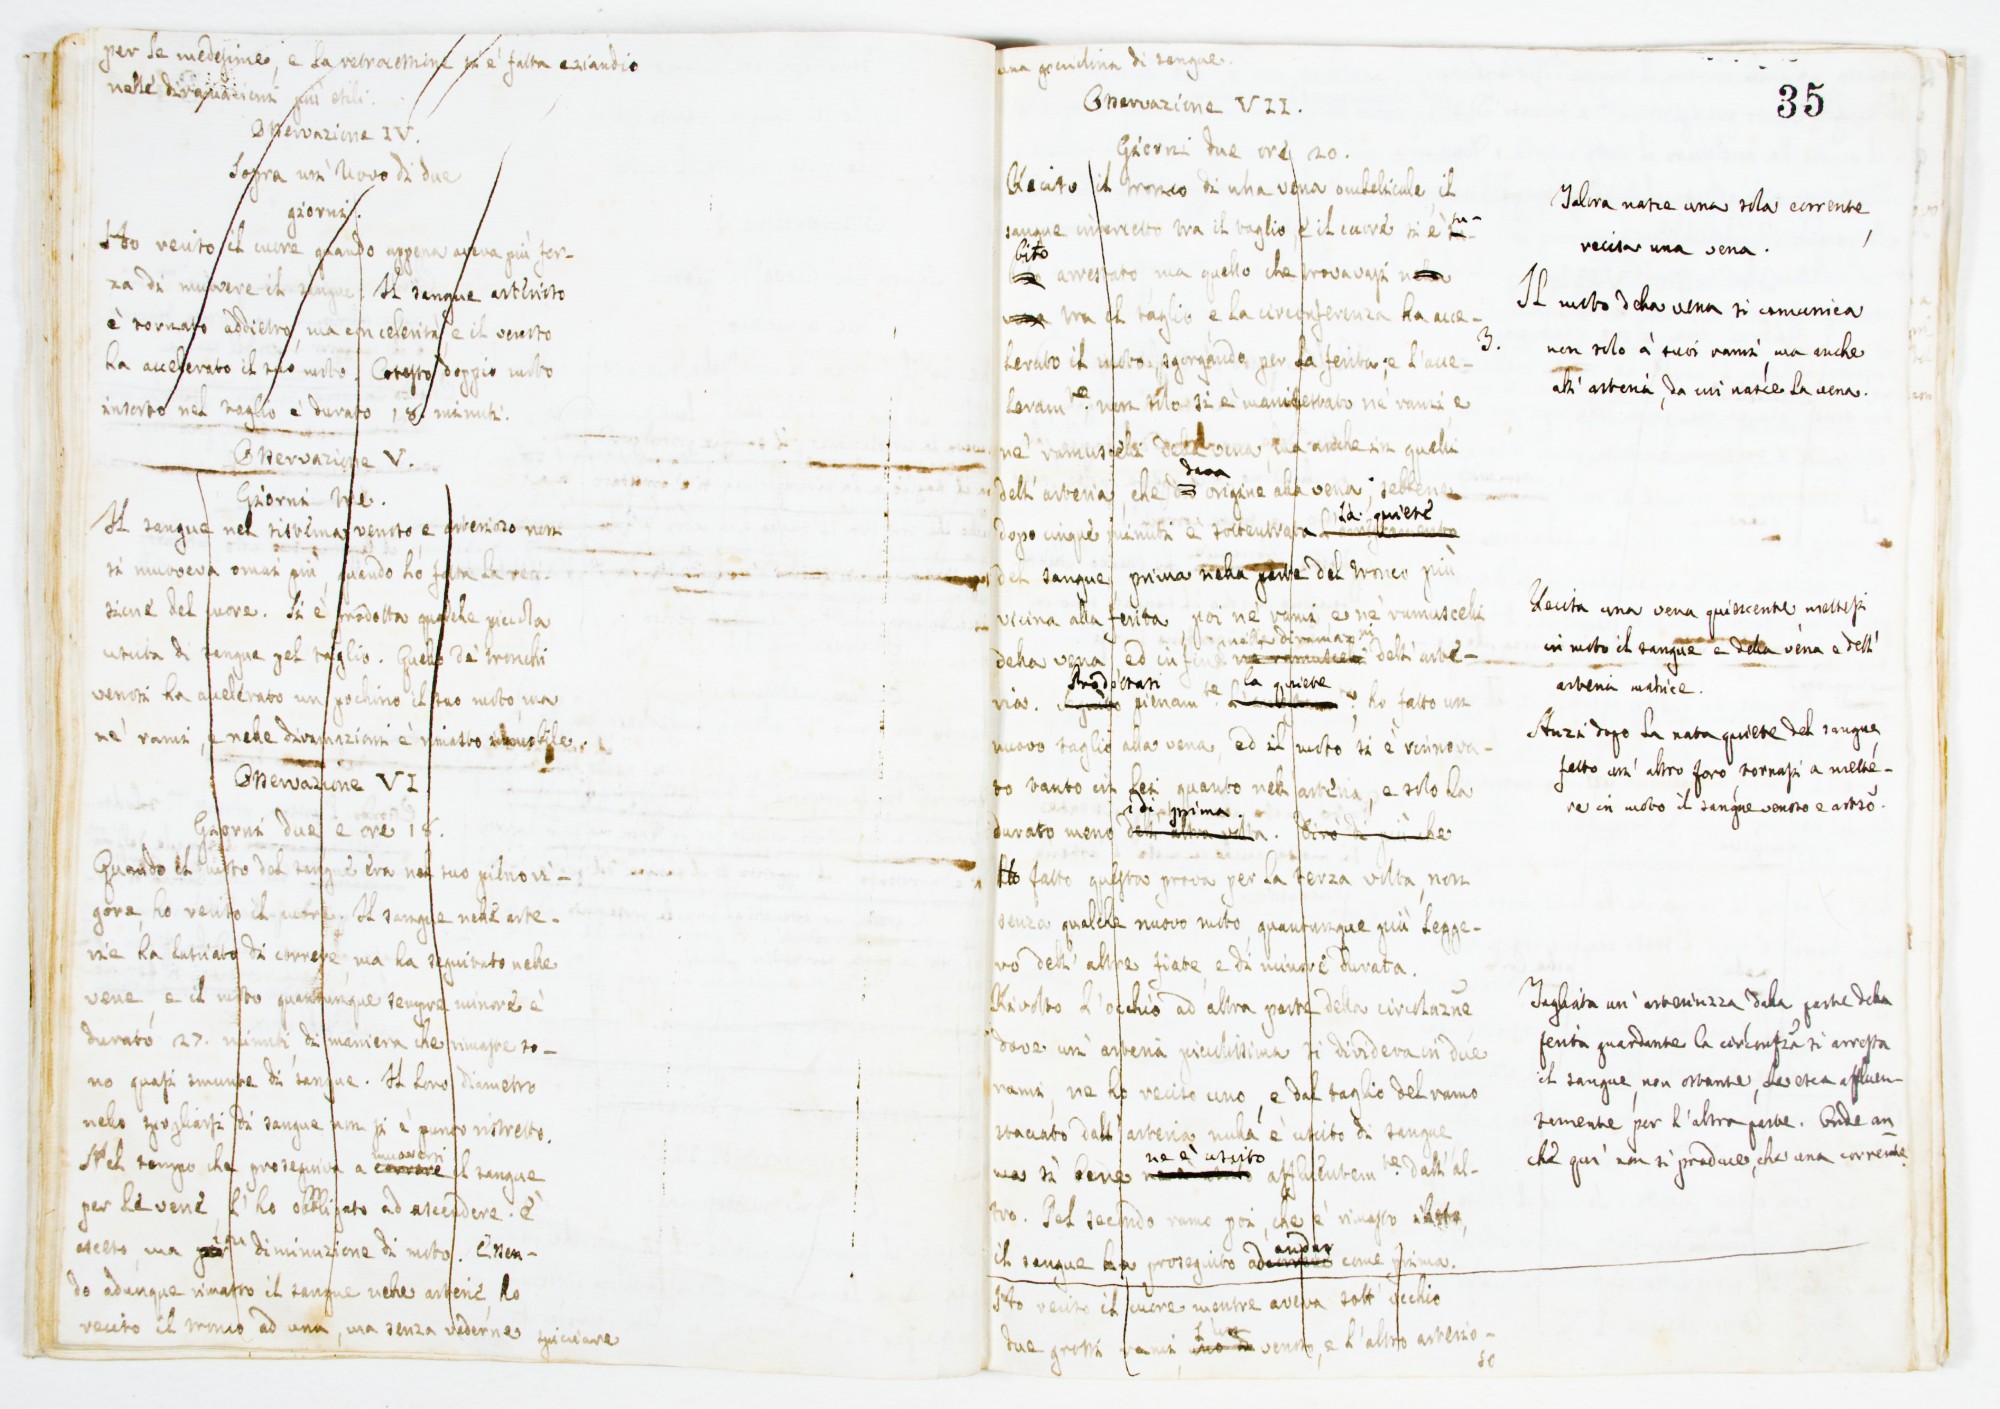 per se medesime, e la retrocessione si è fatta eziandio
nelle diramazioni più esili.
Osservazione IV.
Sopra un' Uovo di due
giorni.
Ho reciso il cuore quando appena aveva più for-
za di muovere il sangue. Il sangue arterioso
è tornato addietro, ma con celerità e il venoso
ha accelerato il suo moto. Cotesto doppio moto
insorto nel taglio è durato 18. minuti.
Osservazione V.
Giorni tre.
Il sangue nel sistema venoso, e arterioso non
si muoveva omai più, quando ho fatta la reci-
sione del cuore. Si è prodotta qualche piccola
uscita di sangue pel taglio. Quello de' tronchi
venosi ha accelerato un pochino il suo moto, ma
ne' rami, e nelle diramazioni è rimasto immobile.
Osservazione VI
Giorni due e ore 18.
Quando il moto del sangue era nel suo pieno vi-
gore, ho reciso il cuore. Il sangue nelle arte-
rie ha lasciato di correre, ma ha seguitato nelle
vene, e il moto quantunque sempre minore è
durato 27. minuti, di maniera che rimaste so-
no quasi smunte di sangue. Il loro diametro
nello spogliarsi di sangue non si è punto ristretto.
Nel tempo che proseguiva a correre muoversi il sangue
per le vene, l' ho obbligato ad ascendere. È
asceso, ma diminuzione di moto. Essen-
do adunque rimasto il sangue nelle arterie, ho
reciso il tronco ad una, ma senza vederne spicciare
una gocciolina di sangue.
35
Osservazione VII.
Giorni due ore 20.
Reciso il tronco di una vena ombelicale, il
sangue intercetto tra il taglio, e il cuore si è su-
bito
arrestato, ma quello che trovavasi
tra il taglio e la circonferenza ha acce-
lerato il moto, sgorgando per la ferita; e l' acce-
leram.te non solo si è manifestato ne' rami, e
ne' ramuscelli della vena, ma anche in quelli
dell' arteria, che dava origine alla vena; sebbene
dopo cinque minuti è sottentrata la quiete
del sangue, prima nella parte del tronco più
vicina alla ferita, poi ne' rami e ne' ramuscelli
della vena, ed in fine nelle diramaz.ni ne ramuscelli dell' arte-
ria. pienam.te la quiete, ho fatto un
nuovo taglio alla vena, ed il moto si è rinnova-
to tanto in lei quanto nell' arteria, e solo ha
durato meno di prima. dell' altra volta. Dirò di più che
Ho fatto questa prova per la terza volta, non
senza qualche nuovo moto, quantunque più legge-
ro dell' altre fiate, e di minore durata.
Rivolto l' occhio ad altra parte della circolazne
dove un' arteria piccolissima si divideva in due
rami, ne ho reciso uno, e dal taglio del ramo
staccato dall' arteria nulla è uscito di sangue,
ma sì bene ne è uscito affluentem.te dall' al-
tro. Pel secondo ramo poi, che è rimasto
il sangue ha proseguito ad andar come prima.
Ho reciso il cuore mentre aveva sott' occhio
due grossi rami, l' uno venoso, e l' altro arterio-
so
Talora nasce una sola corrente,
recisa una vena.
3. Il moto della vena si comunica
non solo a' suoi rami, ma anche
all' arteria, da cui nasce la vena.
Recisa una vena quiescente mettesi
in moto il sangue e della vena e dell'
arteria matrice.
Anzi dopo la nata quiete del sangue,
fatto un' altro foro tornasi a mette-
re in moto il sangue venoso e artso.
Tagliata un' arteriuzza dalla parte della
ferita guardante la circonfza si arresta
il sangue, non ostante, che esca affluen-
temente per l' altra parte. Onde an
che qui non si produce, che una corrente.